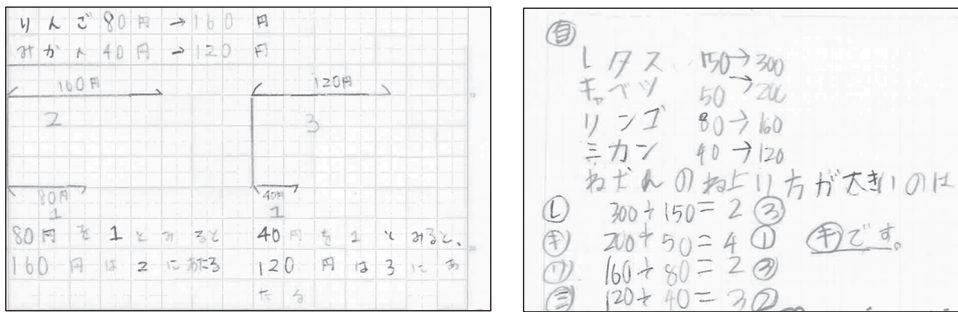 りんご80円→160円
みかん40円→120円
160円 120円
2 3
80円 40円
1 1
80円を1とみると 40円を1とみると、
160円は2にあたる 120円は3にあ
たる
自
レタス 150→300
キャベツ 50→200
リンゴ 80→160
ミカン 40→120
ねだんのね上り方が大きいのは
レ 300÷150=2 ③
キ 200÷50=4 ① キです。
リ 160÷80=2 ③
ミ 120÷40=3 ②